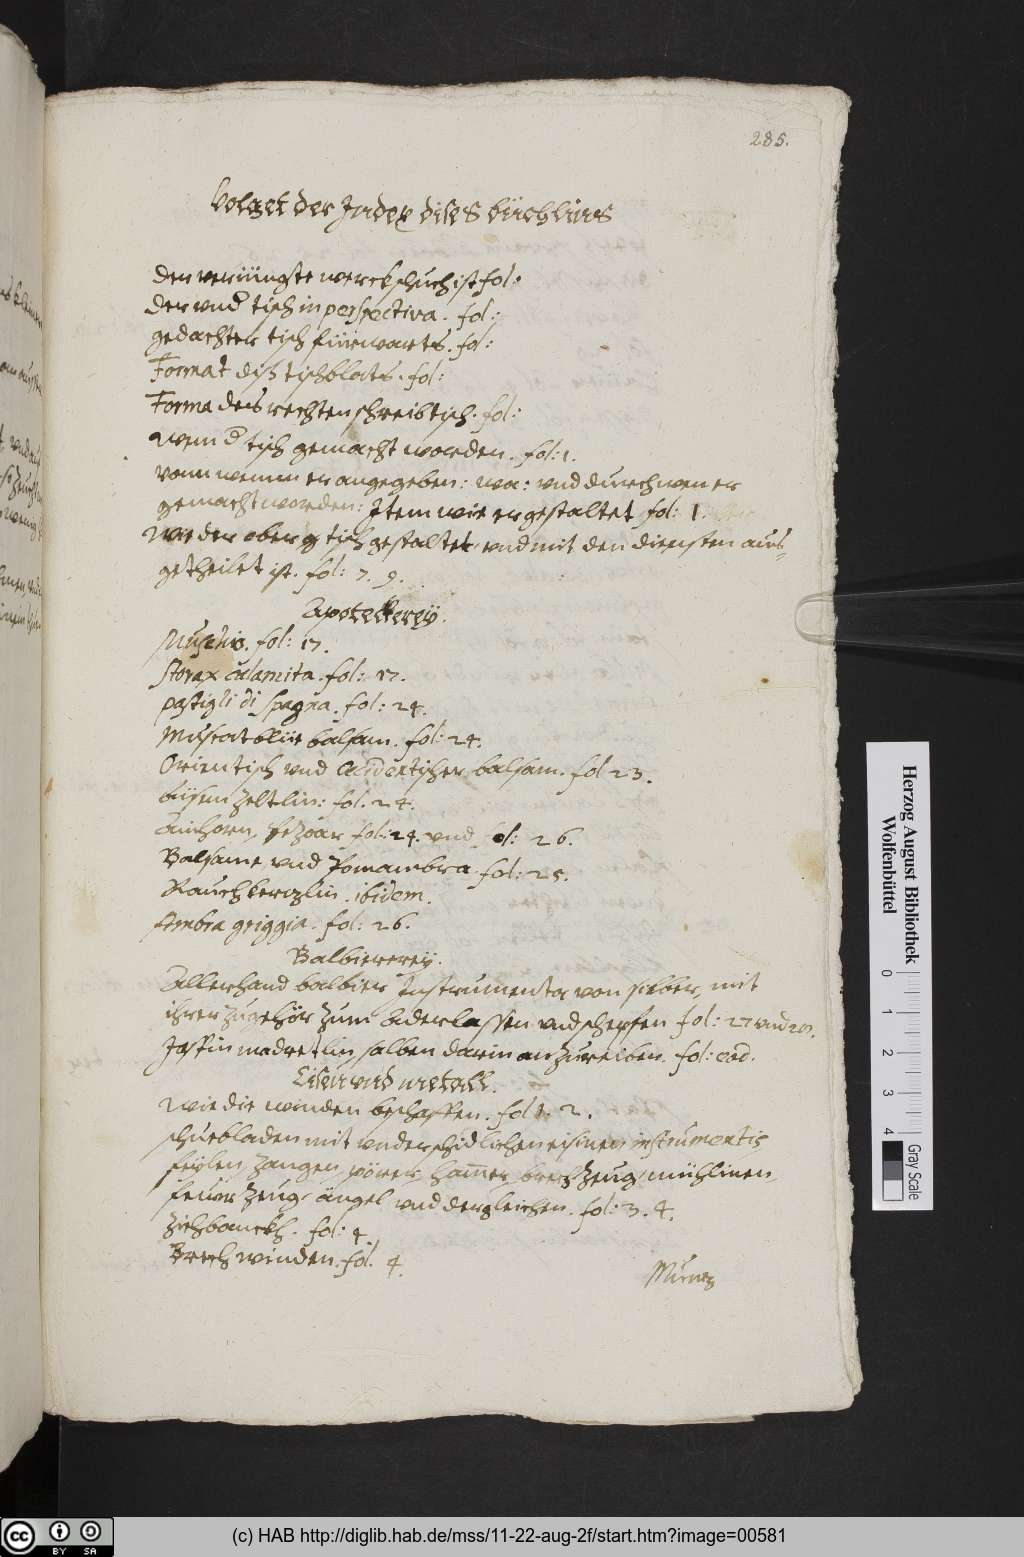 285.
Volget der Index dises büechlins
der veriüngte werckschuch ist fol:
der und tisch in perspectiva. fol:
gedachter tisch fürwarts. fol:
Format diß tischblats. fol:
Forma des rechten schreibtisch. fol:
wenn d tisch gemacht worden. fol: 1.
vonn wemm er angegeben: wa: und durch wen er
gemacht worden: Item wie er gestaltet fol: 1.
wie der ober tisch gestaltet und mit den diensten aus-
getheilet ist. fol: 7. 9.
Apoteckerey.
Muschio. fol: 17.
Storax calamita. fol: 17.
pastigli di spagna. fol: 24.
Muscatblüe balsam. fol: 24.
Orientisch und occidentischer balsam. fol 23.
büsem zeltlin: fol. 24.
Ainhorn, bezoar fol: 24. und fol: 26.
Balsame und Pomambra fol: 25.
Rauchkerzlin. ibidem.
Ambra griggia. fol: 26.
Balbiererey.
Allerhand balbier Instrumenta von silber, mit
ihrer zugehör zum aderlassen und schrepfen fol: 27 und 28.
Jaspin madretlin salben darin anzureiben. fol: eod.
Eisen und metall.
wie die winden beschaffen. fol 1. 2.
schuebladen mit underschidlichen eisinen instrumentis
feÿlen, zangen, pörer, hamer, brechzeug, mühlinen,
feurzeug, ängel und dergleichen. fol: 3. 4.
Ziehbanckh. fol: 4.
Brechwinden. fol. 4.
Müntz
Herzog August Bibliothek
Wolfenbüttel
0 1 2 3 4
Gray Scale
cc BY SA
(c) HAB http://diglib.hab.de/mss/11-22-aug-2f/start.htm?image=00581